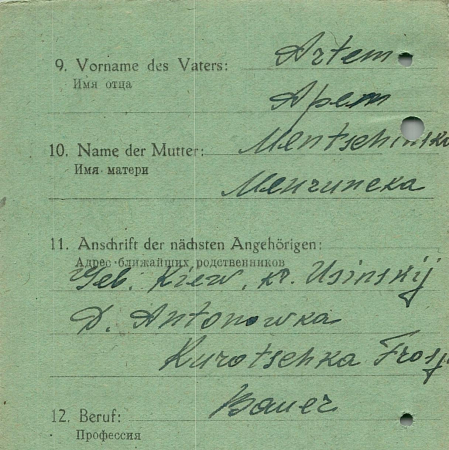 9. Vorname des Vaters: Artem
Имя отца
Арем
10. Name der Mutter: Mentschinska
Имя матери
Менчинска
11. Anschrift der nächsten Angehörigen:
Адрес ближайших родственников
Geb. Kiew, kr. Usinskij
D. Antonowka
Kurotschka Frosj
12. Beruf: Bauer
Профессия